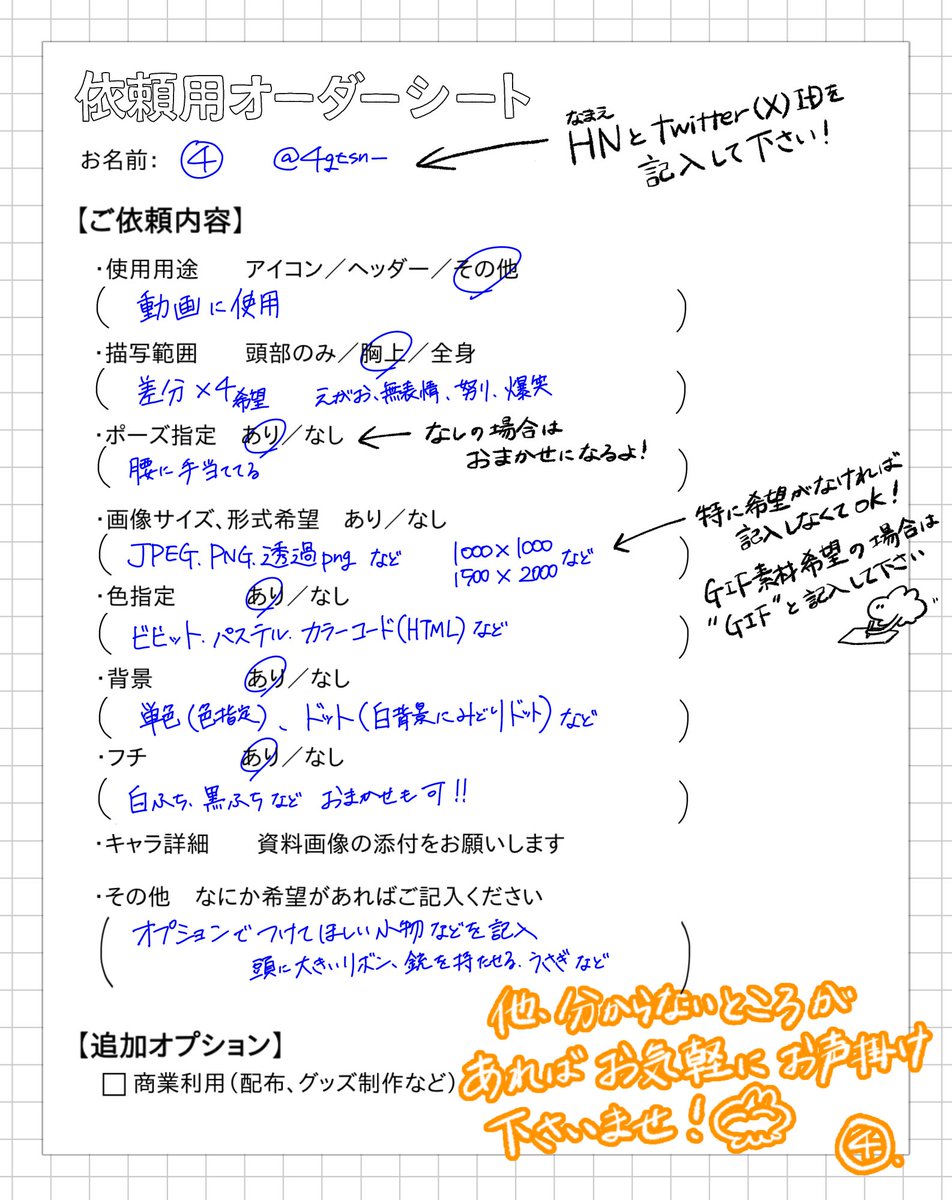 依頼用オーダーシート
お名前: ④ @4gtsn_
なまえ
HNとtwitter(X)IDを
記入して下さい!
【ご依頼内容】
・使用用途 アイコン/ヘッダー/その他
( 動画に使用 )
・描写範囲 頭部のみ/胸上/全身
( 差分×4希望 えがお、無表情、怒り、爆笑 )
・ポーズ指定 あり/なし
なしの場合は
おまかせになるよ!
( 腰に手当ててる )
・画像サイズ、形式希望 あり/なし
( JPEG、PNG、透過png など 1000×1000
1500×2000 など )
特に希望がなければ
記入しなくてOK!
GIF素材希望の場合は
"GIF"と記入して下さい
・色指定 あり/なし
( ビビット、パステル、カラーコード(HTML)など )
・背景 あり/なし
( 単色(色指定)、ドット(白背景にみどりドット)など )
・フチ あり/なし
( 白ふち、黒ふちなど おまかせも可!! )
・キャラ詳細 資料画像の添付をお願いします
・その他 なにか希望があればご記入ください
( オプションでつけてほしい小物などを記入
頭に大きいリボン、銃を持たせる、うさぎなど )
【追加オプション】
□ 商業利用(配布、グッズ制作など)
他、分からないところが
あればお気軽にお声掛け
下さいませ!